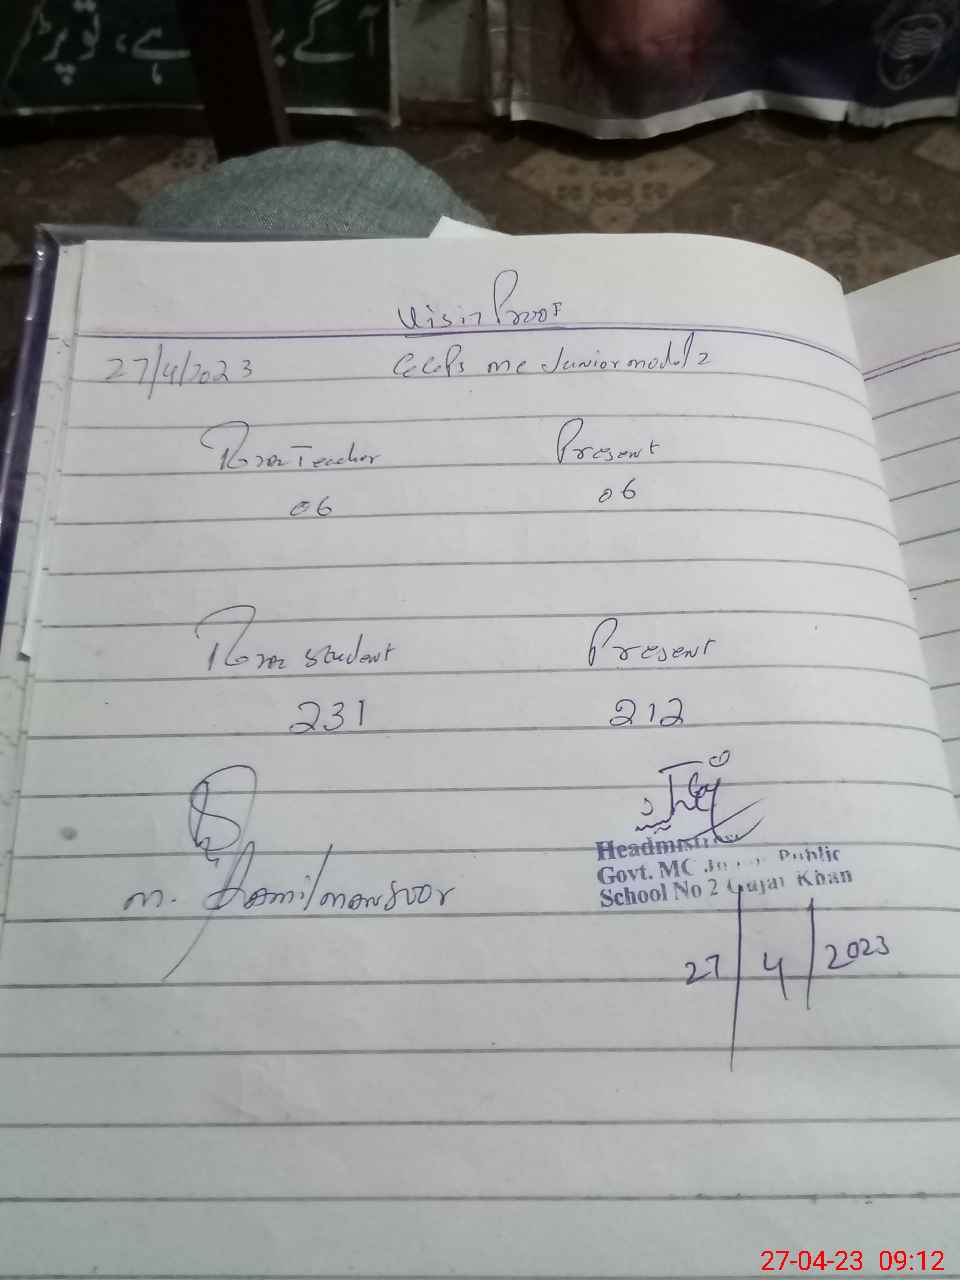 آگے ہے، تو پر
Visit Proof
27/4/2023 GGPS MC Junior model 2
Teacher Present
06 06
Student Present
231 212
Headmistress
M. Jamil mansoor
Govt. MC Junior Public
School No 2 Gujar Khan
27 | 4 | 2023
27-04-23 09:12